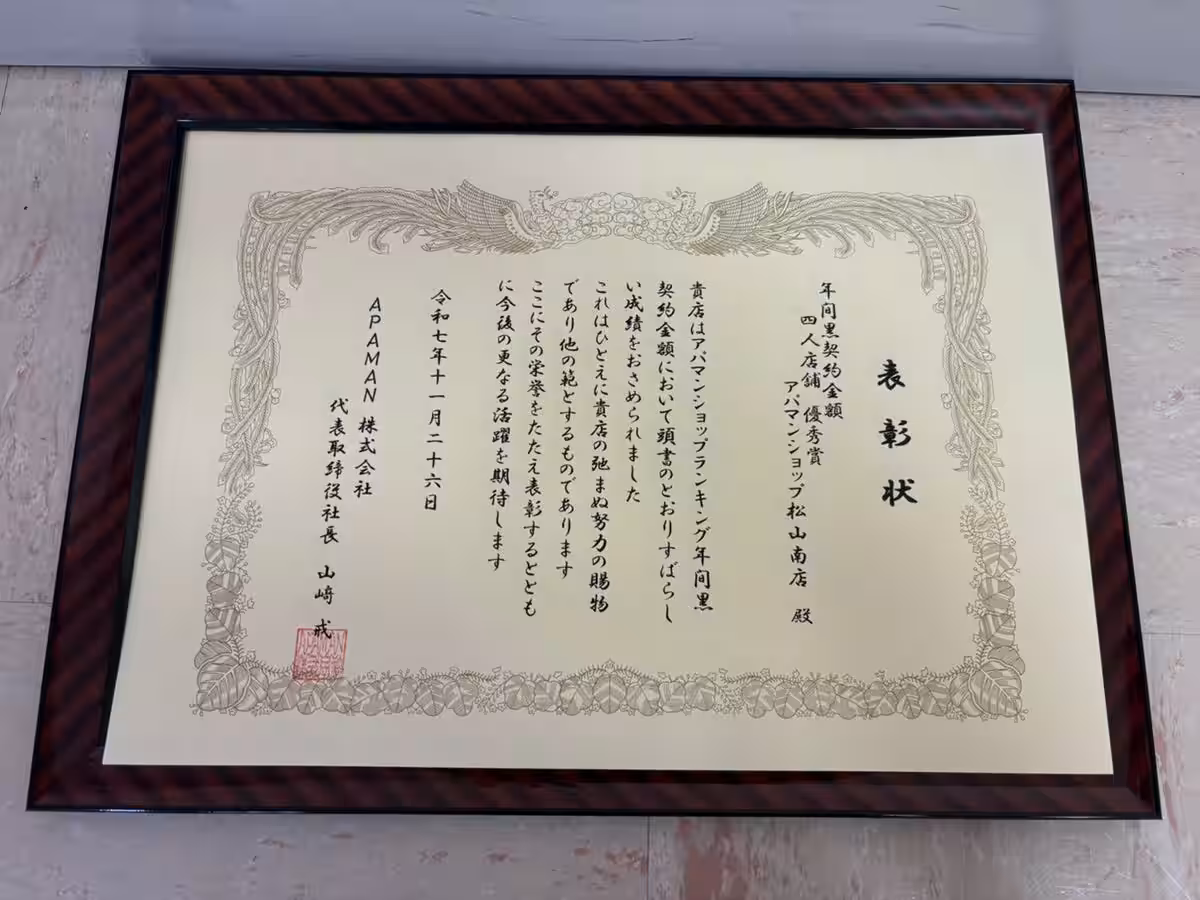 表彰状
年間黒契約金額
四人店舗 優秀賞
アパマンショップ松山南店 殿
貴店はアパマンショップランキング年間黒
契約金額において頭書のとおりすばらし
い成績をおさめられました
これはひとえに貴店の弛まぬ努力の賜物
であり他の範とするものであります
ここにその栄誉をたたえ表彰するととも
に今後の更なる活躍を期待します
令和七年十一月二十六日
APAMAN株式会社
代表取締役社長 山﨑 戒